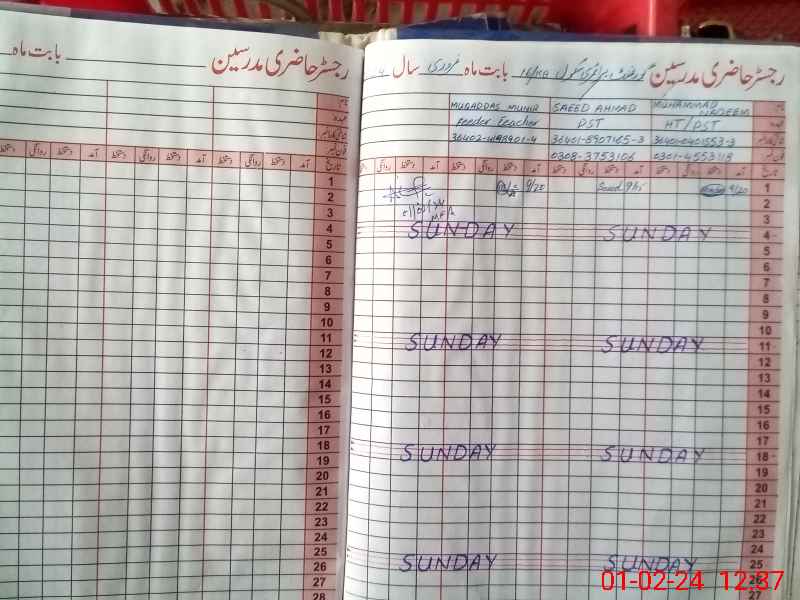 رجسٹر حاضری مدرسین
بابت ماہ
نام
عہدہ
شناختی کارڈ نمبر
فون نمبر
تاریخ آمد دستخط روانگی دستخط آمد دستخط روانگی دستخط آمد دستخط روانگی
1
2
3
4
5
6
7
8
9
10
11
12
13
14
15
16
17
18
19
20
21
22
23
24
25
26
27
28
رجسٹر حاضری مدرسین گورنمنٹ پرائمری سکول بابت ماہ فروری سال
نام MUHAMMAD NADEEM SAEED AHMAD MUQADDAS MUNIR
عہدہ HT/PST PST Feeder Teacher
شناختی کارڈ نمبر
فون نمبر 0301-4553118 0308-3753106
تاریخ آمد دستخط روانگی دستخط آمد دستخط روانگی دستخط آمد دستخط روانگی
1 Saeed
2
3
4 SUNDAY SUNDAY
5
6
7
8
9
10
11 SUNDAY SUNDAY
12
13
14
15
16
17
18 SUNDAY SUNDAY
19
20
21
22
23
24
25 SUNDAY SUNDAY
26
27
01-02-24 12:37